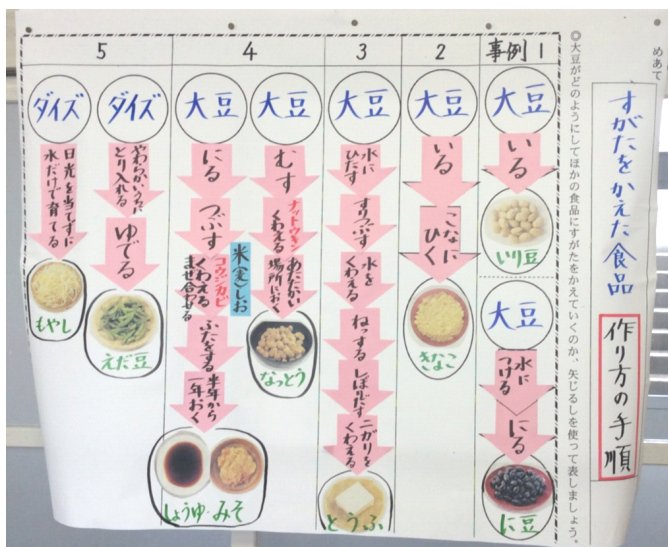 めあて
すがたをかえた食品
作り方の手順
◎大豆がどのようにしてほかの食品にすがたをかえていくのか、矢じるしを使って表しましょう。
事例1
大豆
いる
いり豆
大豆
水に
つける
にる
に豆
2
大豆
いる
こなに
ひく
きなこ
3
大豆
水に
ひたす
すりつぶす
水を
くわえる
ねっする
しぼりだす
ニガリを
くわえる
とうふ
4
大豆
むす
ナットウキン
くわえる
あたたかい
場所におく
なっとう
大豆
にる
つぶす
米(麦)しお
コウジカビ
くわえる
まぜ合わせる
ふたをする
半年から
一年おく
しょうゆ・みそ
5
ダイズ
やわらかいうちに
とり入れる
ゆでる
えだ豆
ダイズ
日光を当てずに
水だけで育てる
もやし